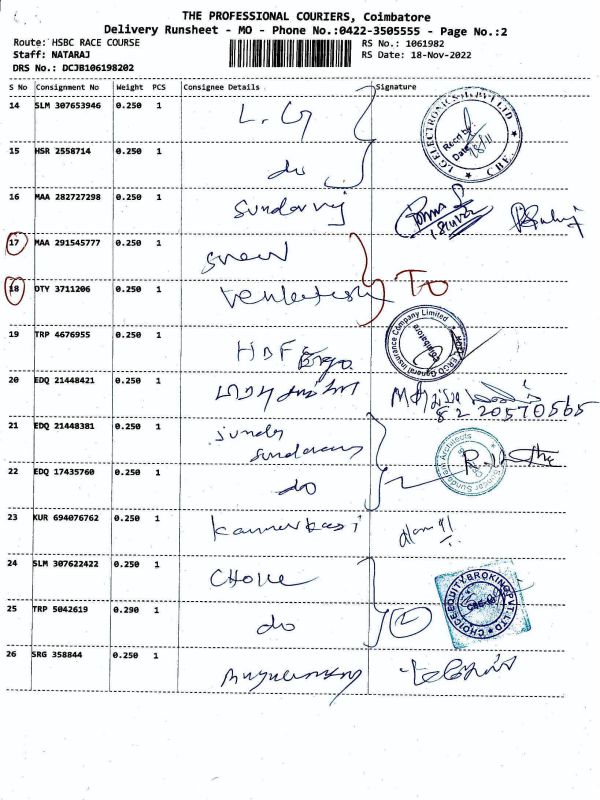 THE PROFESSIONAL COURIERS, Coimbatore
Delivery Runsheet - MO - Phone No.:0422-3505555 - Page No.:2
Route: HSBC RACE COURSE
RS No.: 1061982
Staff: NATARAJ
RS Date: 18-Nov-2022
DRS No.: DCJB106198202
S No Consignment No Weight PCS Consignee Details Signature
14 SLM 307653946 0.250 1 L.G
LG ELECTRONICS Recd by Date 18/11 CBE.
15 HSR 2558714 0.250 1 do
16 MAA 282727298 0.250 1 Sundarraj
17 MAA 291545777 0.250 1
18 DTY 3711206 0.250 1 Venkatesh
19 TRP 4676955 0.250 1 HDF Ergo
HDFC ERGO General Insurance Company Limited Coimbatore
20 EDQ 21448421 0.250 1
8220570565
21 EDQ 21448381 0.250 1 Sundaram
Sundaram Architects
22 EDQ 17435760 0.250 1 do
23 KUR 694076762 0.250 1
24 SLM 307622422 0.250 1 CHOICE
CHOICE EQUITY BROKING PVT LTD
25 TRP 5042619 0.290 1 do 2
26 SRG 358844 0.250 1